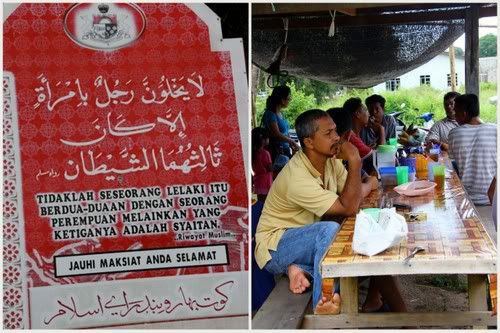 لَا يَخْلُوَنَّ رَجُلٌ بِامْرَأَةٍ
إِلَّا كَانَ
ثَالِثَهُمَا الشَّيْطَانُ
TIDAKLAH SESEORANG LELAKI ITU
BERDUA-DUAAN DENGAN SEORANG
PEREMPUAN MELAINKAN YANG
KETIGANYA ADALAH SYAITAN.
Riwayat Muslim
JAUHI MAKSIAT ANDA SELAMAT
كوت بهارو بندر راي اسلام